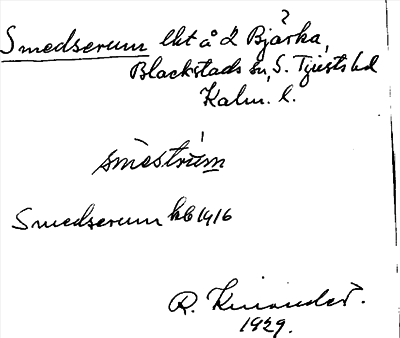 Smedserum lht å 2 Bjärka,
Blackstads sn, S. Tjusts hd
Kalm. l.
smèstrúm
Smedserum kb 1916
R. Kinander.
1929.